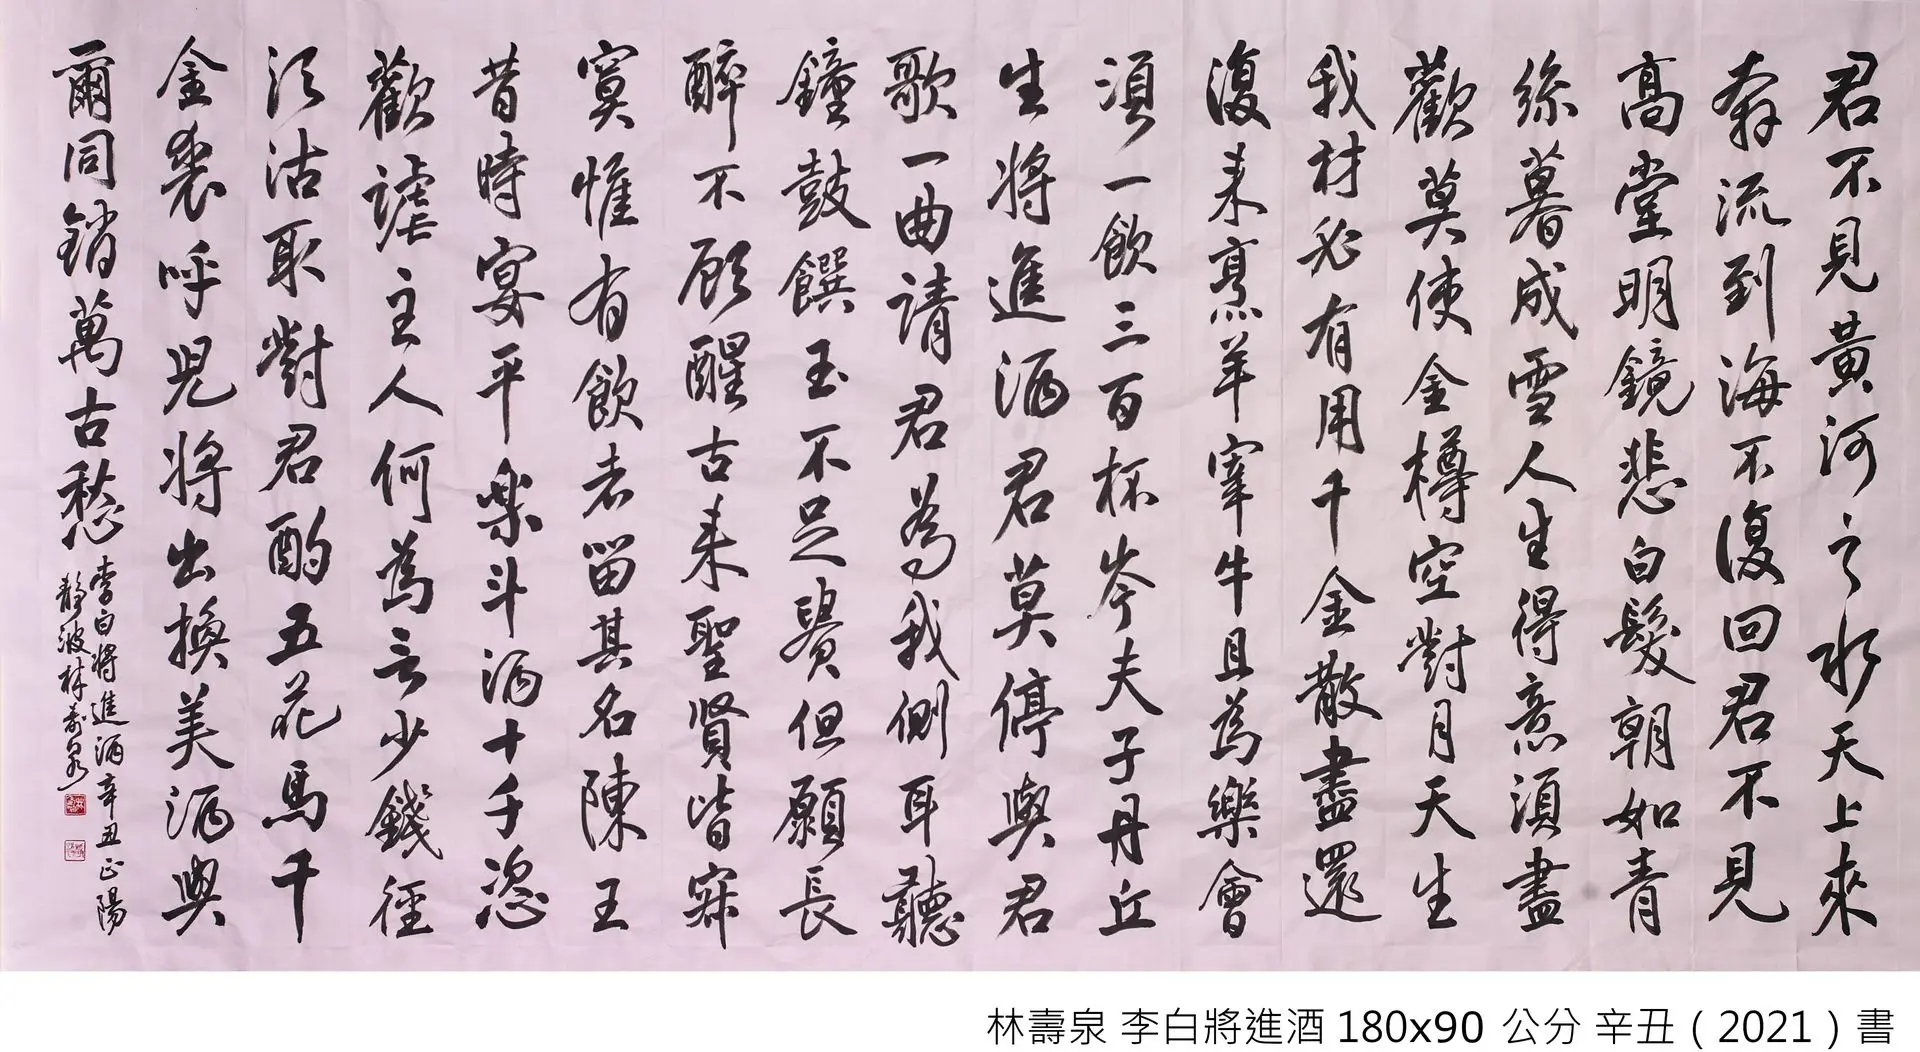 君不見黃河之水天上來
奔流到海不復回君不見
高堂明鏡悲白髮朝如青
絲暮成雪人生得意須盡
歡莫使金樽空對月天生
我材必有用千金散盡還
復來烹羊宰牛且為樂會
須一飲三百杯岑夫子丹丘
生將進酒君莫停與君
歌一曲請君為我側耳聽
鐘鼓饌玉不足貴但願長
醉不願醒古來聖賢皆寂
寞惟有飲者留其名陳王
昔時宴平樂斗酒十千恣
歡謔主人何為言少錢徑
須沽取對君酌五花馬千
金裘呼兒將出換美酒與
爾同銷萬古愁
李白將進酒辛丑正陽
靜波林壽泉
林壽泉 李白將進酒 180x90 公分 辛丑（2021）書